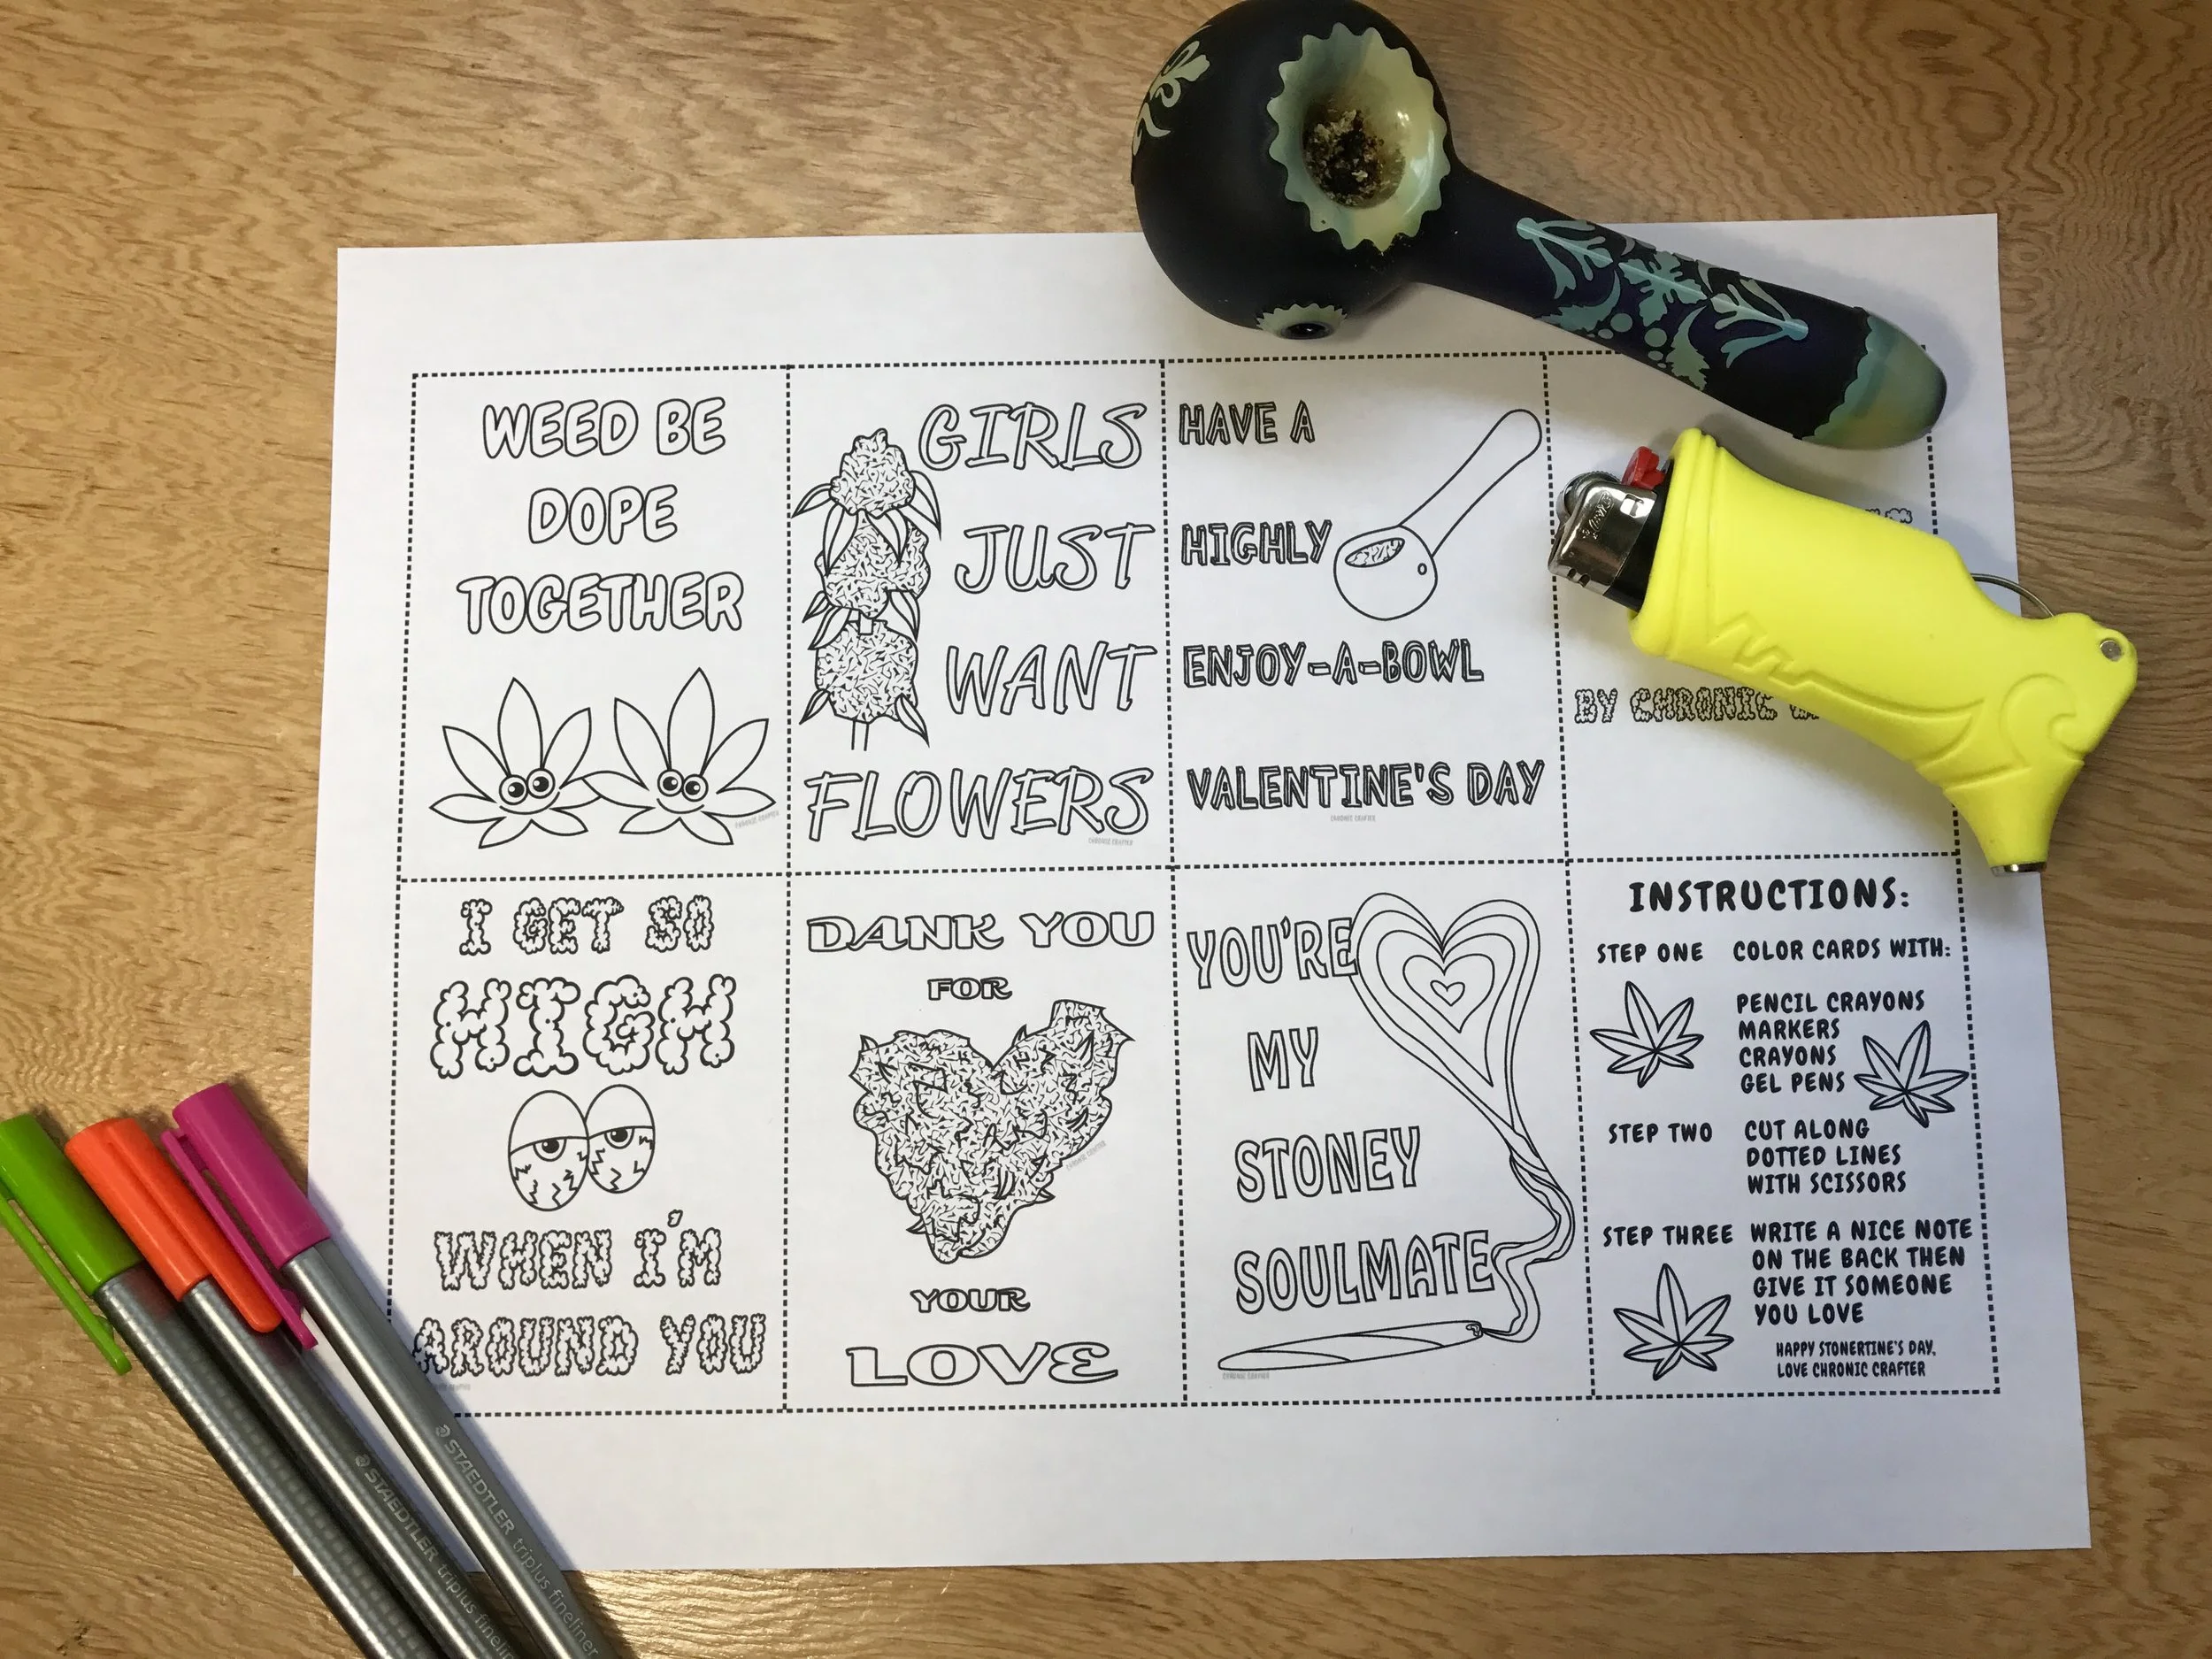 WEED BE
DOPE
TOGETHER
CHRONIC CRAFTER
GIRLS
JUST
WANT
FLOWERS
CHRONIC CRAFTER
HAVE A
HIGHLY
ENJOY-A-BOWL
VALENTINE'S DAY
CHRONIC CRAFTER
BY CHRONIC
I GET SO
HIGH
WHEN I'M
AROUND YOU
DANK YOU
FOR
YOUR
LOVE
CHRONIC CRAFTER
YOU'RE
MY
STONEY
SOULMATE
CHRONIC CRAFTER
INSTRUCTIONS:
STEP ONE COLOR CARDS WITH:
PENCIL CRAYONS
MARKERS
CRAYONS
GEL PENS
STEP TWO CUT ALONG
DOTTED LINES
WITH SCISSORS
STEP THREE WRITE A NICE NOTE
ON THE BACK THEN
GIVE IT SOMEONE
YOU LOVE
HAPPY STONERTINE'S DAY,
LOVE CHRONIC CRAFTER
STAEDTLER triplus fineliner
STAEDTLER triplus